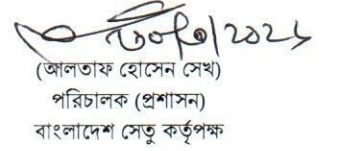 (আলতাফ হোসেন সেখ)
পরিচালক (প্রশাসন)
বাংলাদেশ সেতু কর্তৃপক্ষ